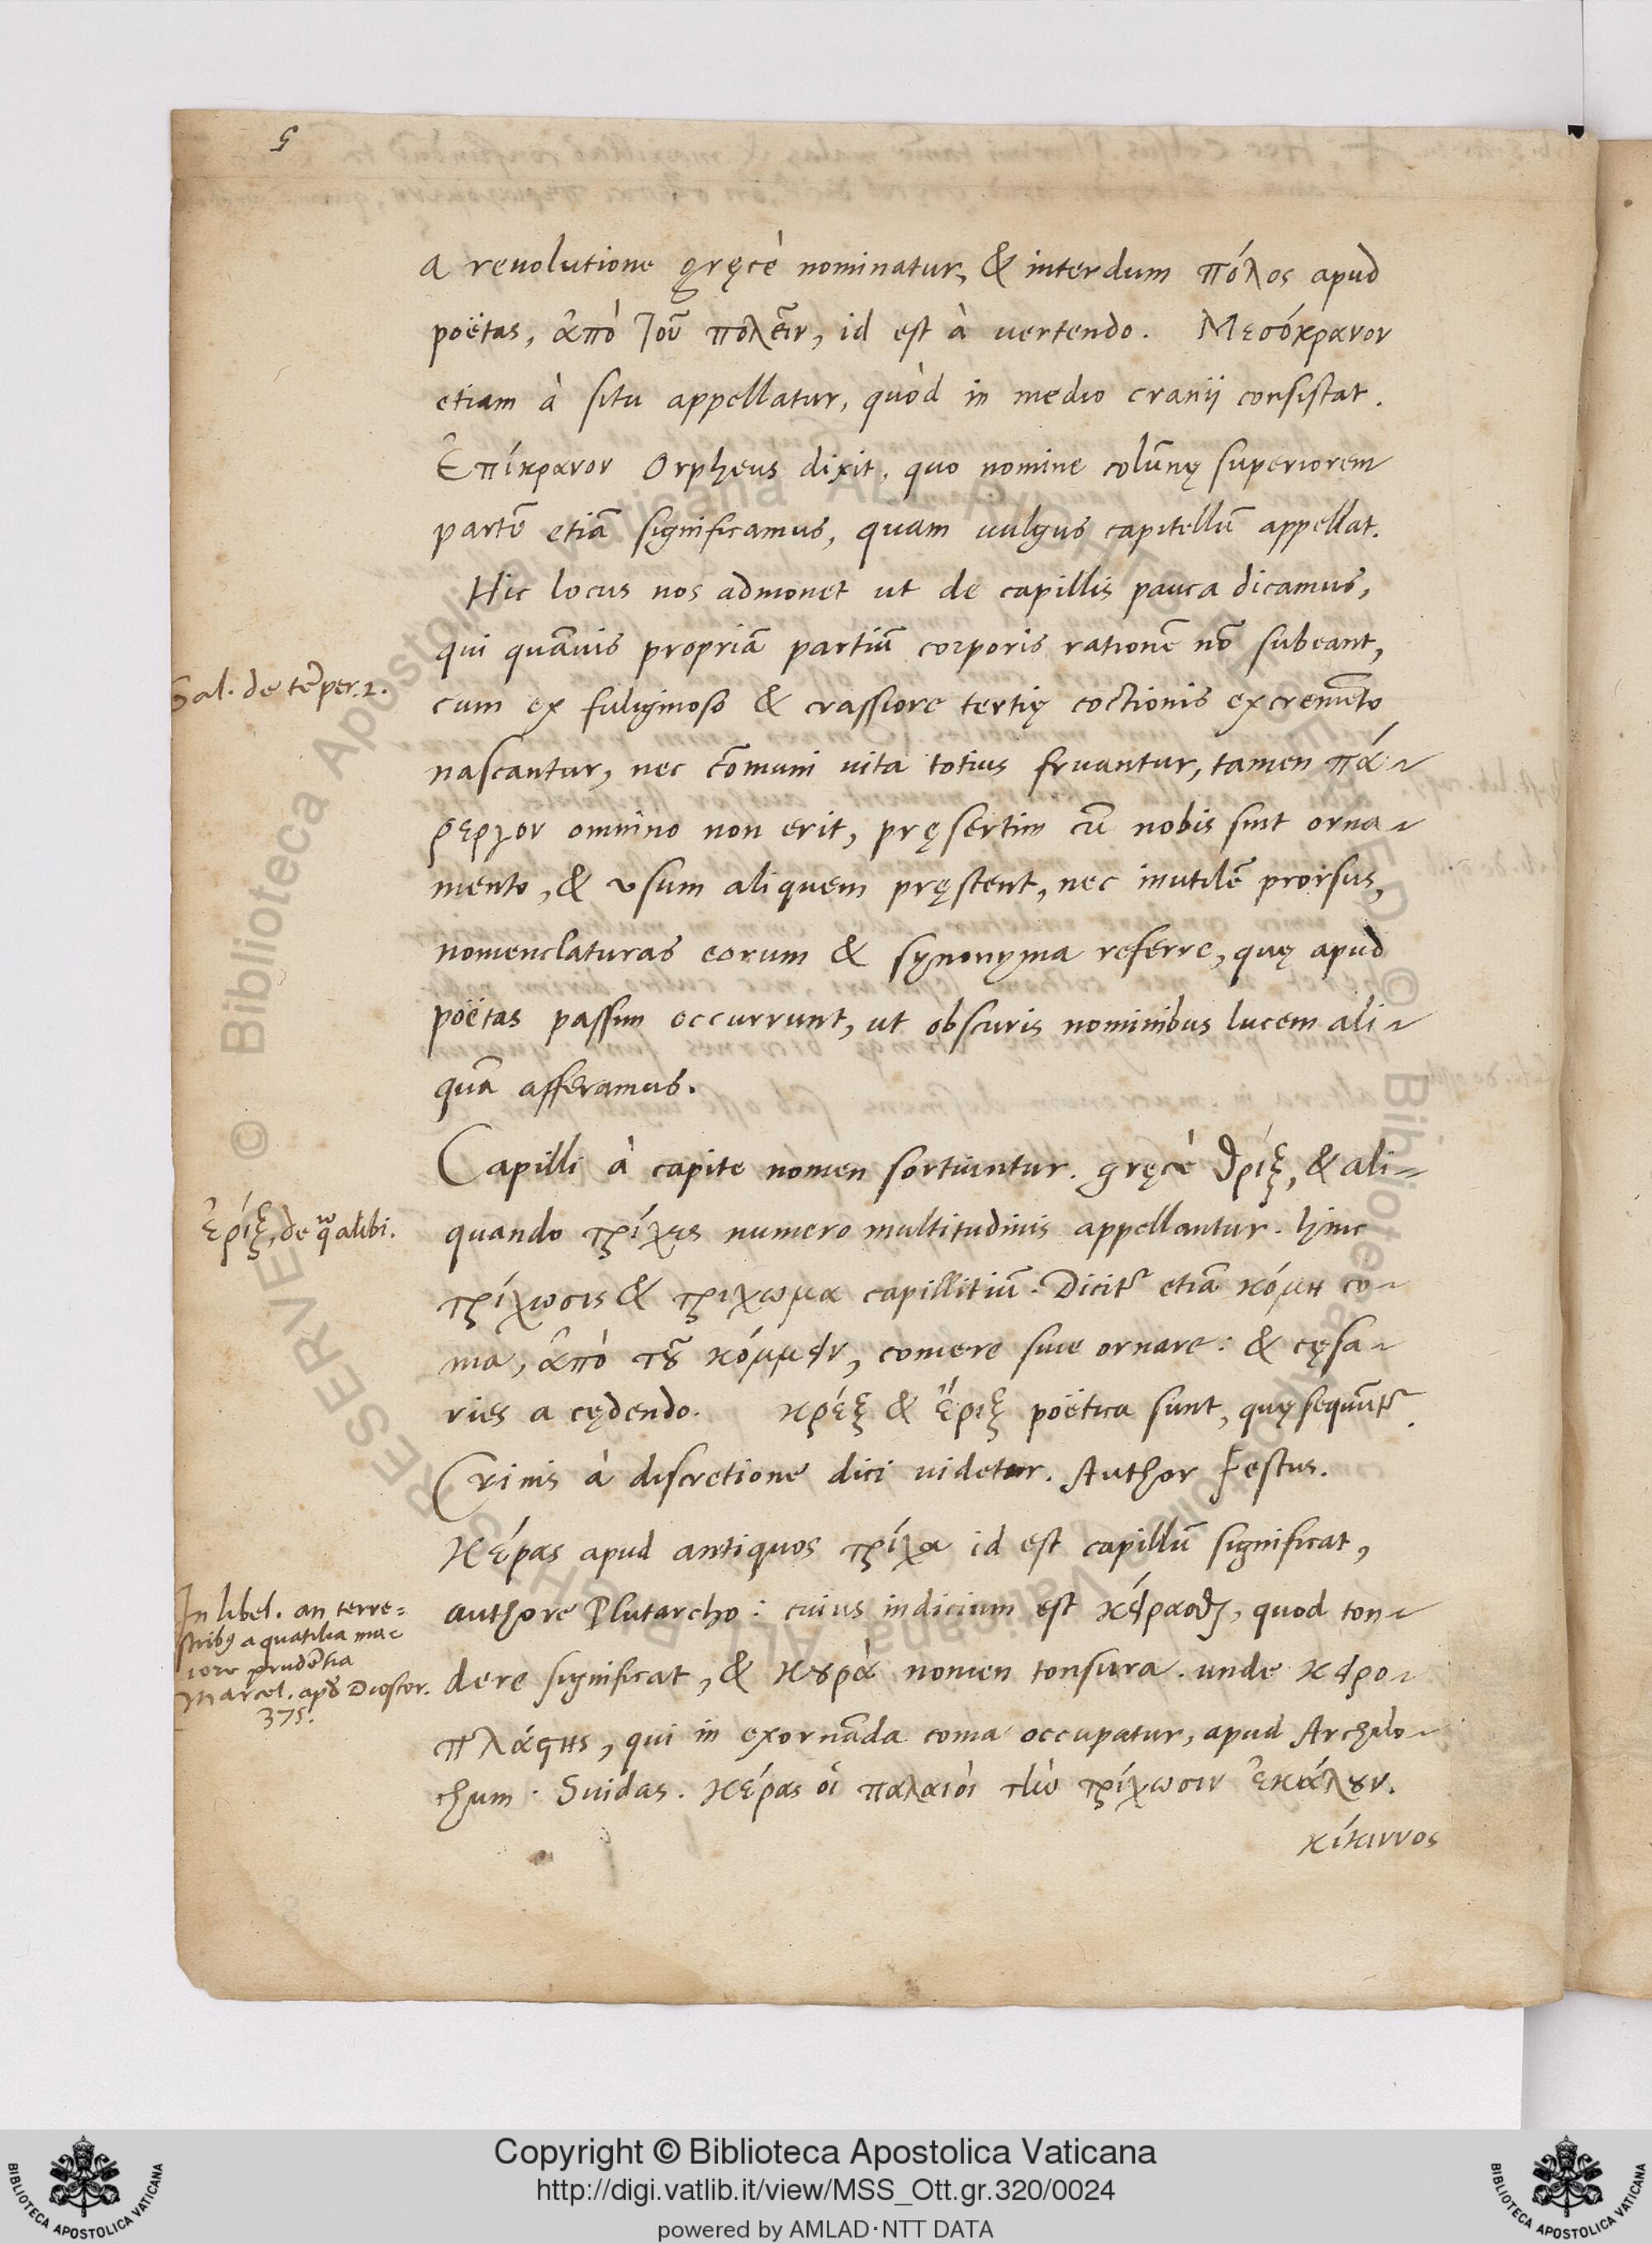 5
a reuolutione gręcè nominatur, & interdum πόλος apud
poëtas, ἀπὸ τοῦ πολεῖν, id est à uertendo. Μεσόκρανον
etiam à situ appellatur, quòd in medio cranij consistat.
Ἐπίκρανον Orpheus dixit, quo nomine colūnę superiorem
partē etiā significamus, quam uulgus capitellū appellat.
Hic locus nos admonet ut de capillis pauca dicamus,
qui quāuis propriā partiū corporis rationē nō subeant,
Gal. de tēper. 2.
cum ex fuliginoso & crassiore tertię coctionis excremēto
nascantur, nec cōmuni uita totius fruantur, tamen πά-
ρεργον omnino non erit, pręsertim cū nobis sint orna-
mento, & vsum aliquem pręstent, nec inutilē prorsus,
nomenclaturas eorum & synonyma referre, quę apud
poëtas passim occurrunt, ut obscuris nominibus lucem ali-
quā afferamus.
Capilli à capite nomen sortiuntur. gręcè θρίξ, & ali-
ἐρίξ, de qͦ alibi.
quando τρίχες numero multitudinis appellantur. hinc
τρίχωσις & τριχωμα capillitiū. Dicitʳ etiā κόμη co-
ma, ἀπὸ τοῦ κόμμειν, comere siue ornare: & cęsa-
ries a cędendo. κρέξ & ἔριξ poëtica sunt, quę sequūtʳ.
Crinis à discretione dici uidetur. Author Festus.
Κέρας apud antiquos τρίχα id est capillū significat,
In libel. an terre=
stribꝰ aquatilia ma=
iore prudētia
Marcel. apð Dioscor.
375.
authore Plutarcho: cuius indicium est κείρασθαι, quod ton-
dere significat, & κουρὰ nomen tonsura. unde κερο-
πλάστης, qui in exornāda coma occupatur, apud Archilo-
chum. Suidas. κέρας οἱ παλαιοὶ τὴν τρίχωσιν ἐκάλουν.
κίκιννος
Copyright © Biblioteca Apostolica Vaticana
http://digi.vatlib.it/view/MSS_Ott.gr.320/0024
powered by AMLAD·NTT DATA